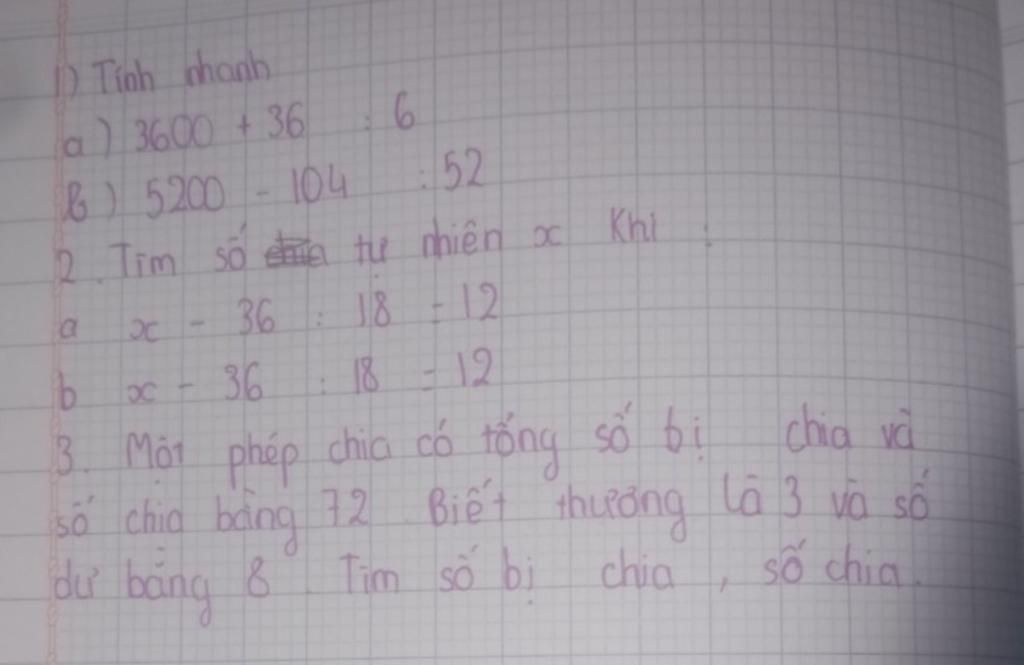 1) Tính nhanh
a) 3600 + 36 : 6
b) 5200 - 104 : 52
2. Tìm số tự nhiên x Khi :
a x - 36 : 18 = 12
b x - 36 : 18 = 12
3. Một phép chia có tổng số bị chia và
số chia bằng 72 Biết thương là 3 và số
dư bằng 8. Tìm số bị chia, số chia.